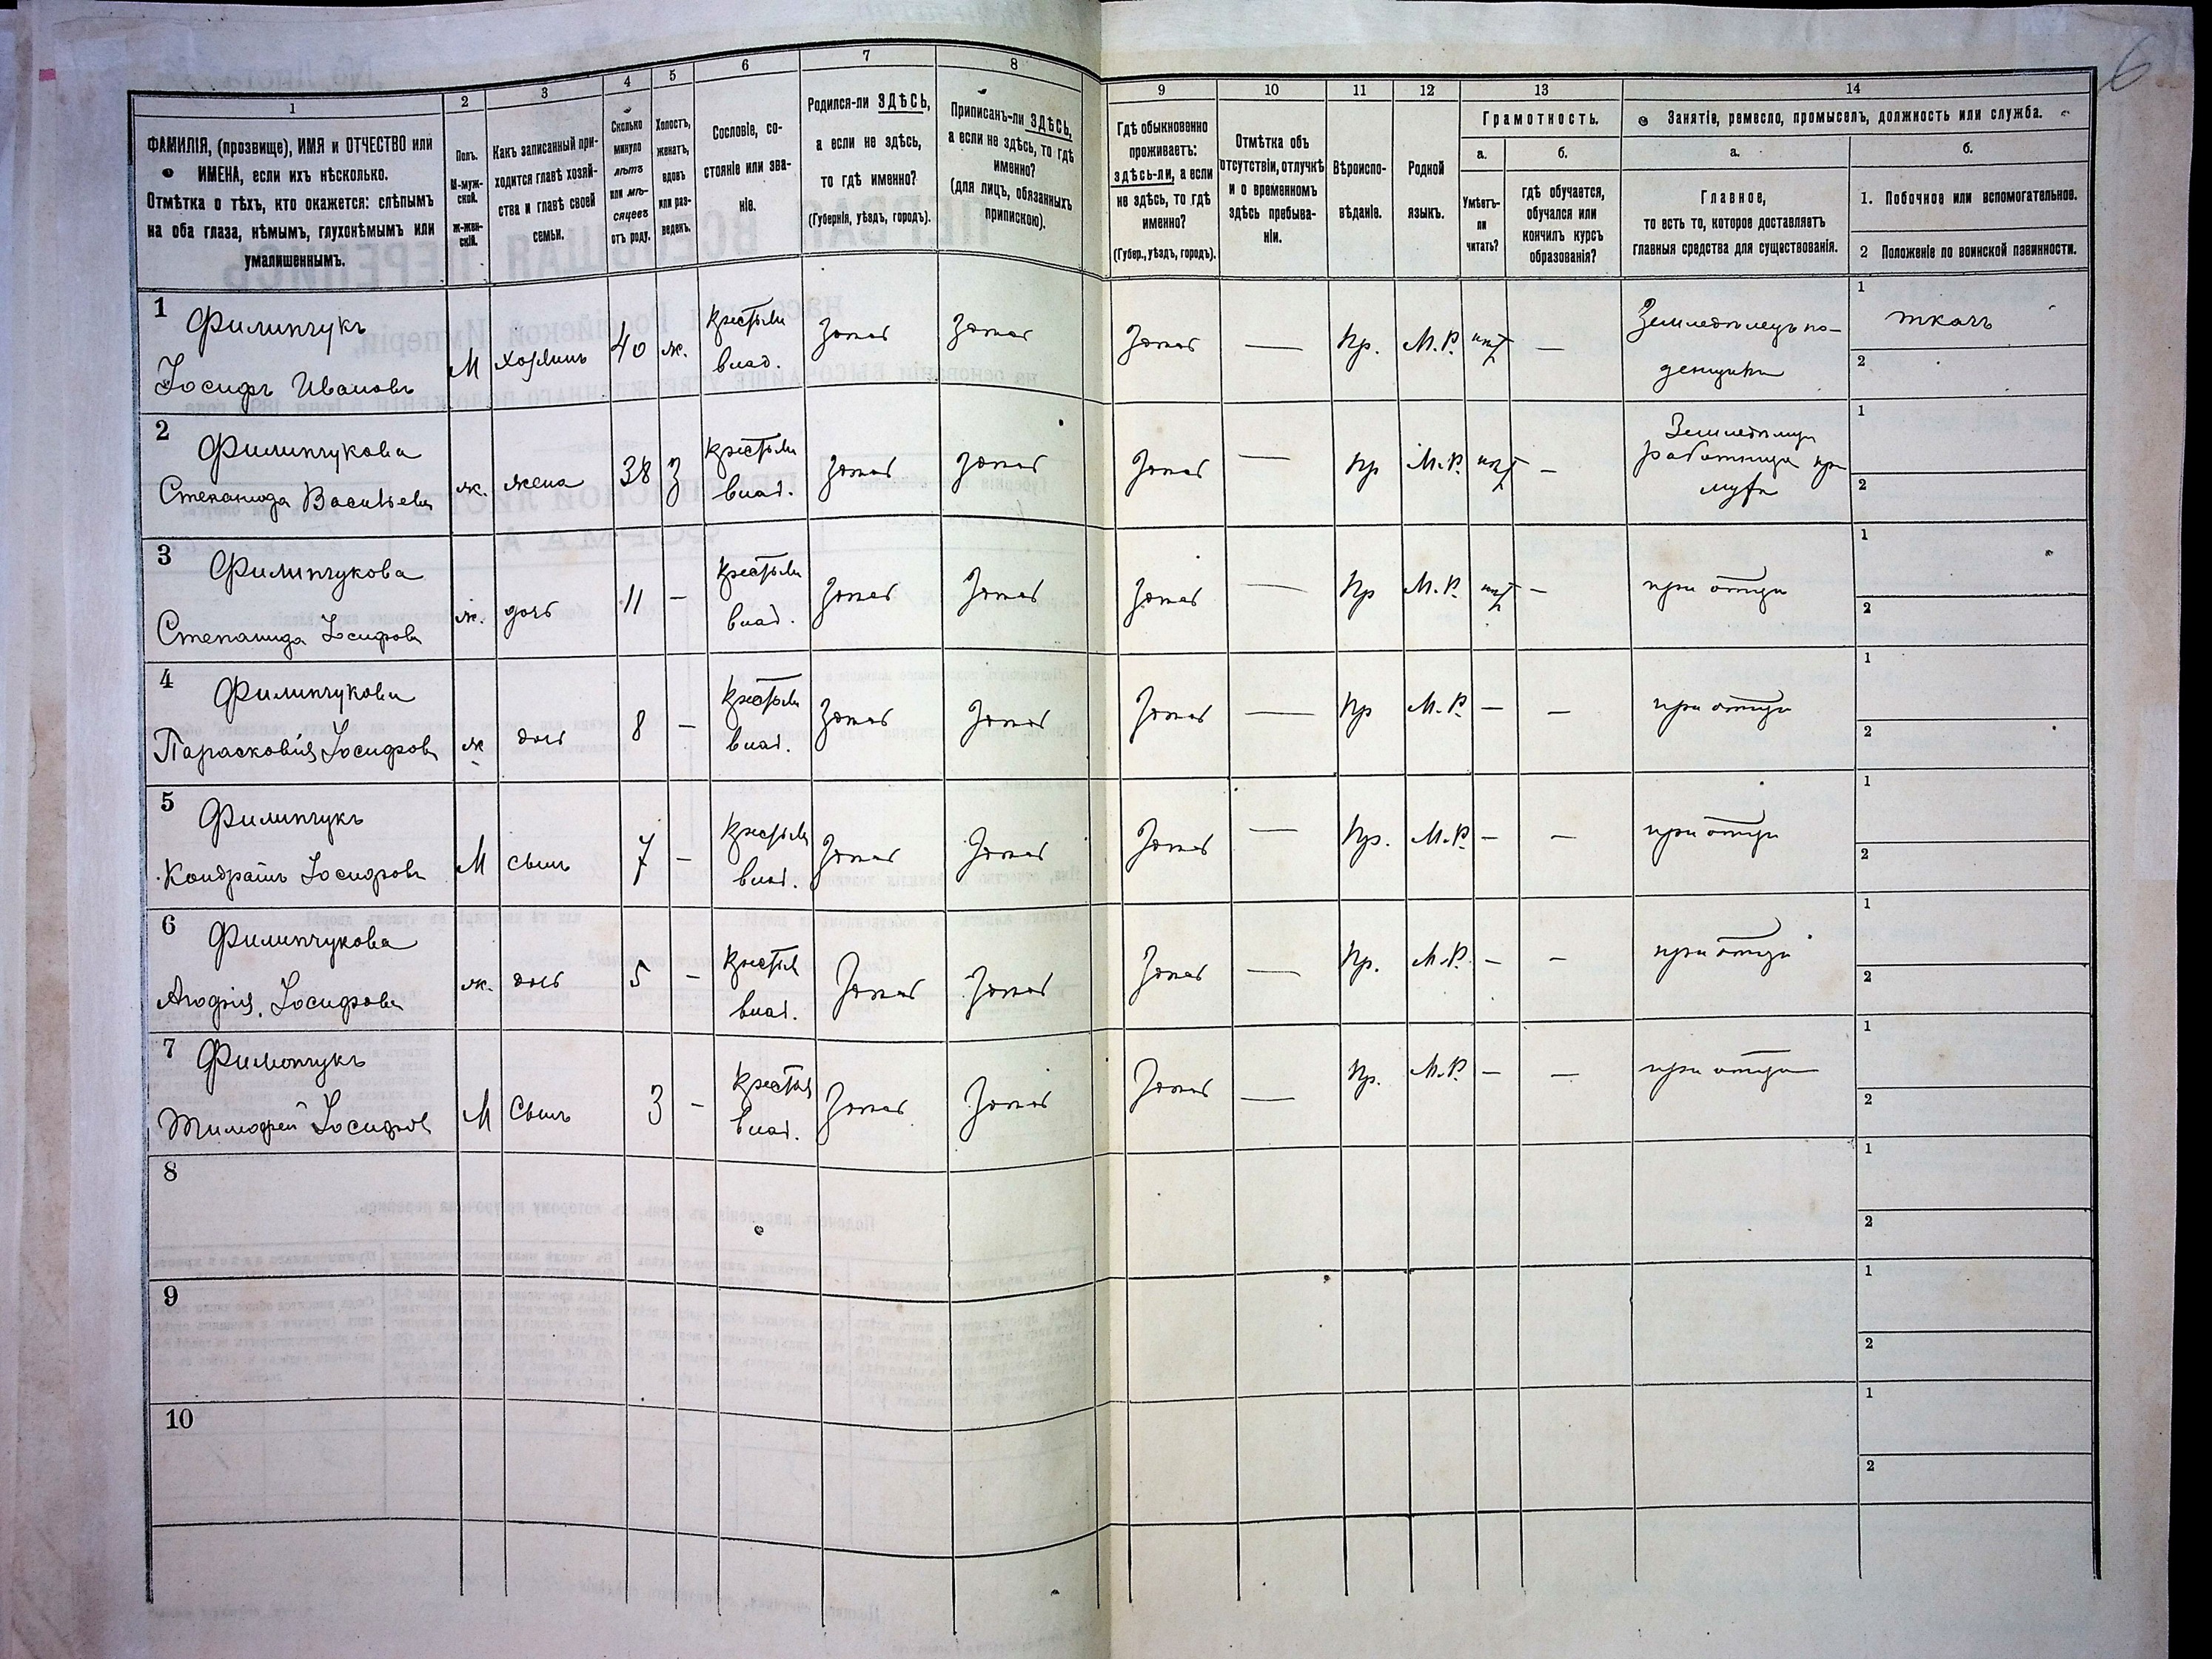 6
1
2
3
4
5
6
7
8
9
10
11
12
13
14
ФАМИЛІЯ, (прозвище), ИМЯ и ОТЧЕСТВО или
ИМЕНА, если ихъ нѣсколько.
Отмѣтка о тѣхъ, кто окажется: слѣпымъ
на оба глаза, нѣмымъ, глухонѣмымъ или
умалишеннымъ.
Полъ.
М-муж-
ской.
Ж-жен-
скій.
Какъ записанный при-
ходится главѣ хозяй-
ства и главѣ своей
семьи.
Сколько
минуло
лѣтъ
или мѣ-
сяцевъ
отъ роду.
Холостъ,
женатъ,
вдовъ
или раз-
веденъ.
Сословіе, со-
стояніе или зва-
ніе.
Родился-ли ЗДѢСЬ,
а если не здѣсь,
то гдѣ именно?
(Губернія, уѣздъ, городъ).
Приписанъ-ли ЗДѢСЬ,
а если не здѣсь, то гдѣ
именно?
(для лицъ, обязанныхъ
припискою).
Гдѣ обыкновенно
проживаетъ:
здѣсь-ли, а если
не здѣсь, то гдѣ
именно?
(Губер., уѣздъ, городъ).
Отмѣтка объ
отсутствіи, отлучкѣ
и о временномъ
здѣсь пребыва-
ніи.
Вѣроиспо-
вѣданіе.
Родной
языкъ.
Грамотность.
а.
Умѣетъ-
ли
читать?
б.
гдѣ обучается,
обучался или
кончилъ курсъ
образованія?
Занятіе, ремесло, промыселъ, должность или служба.
а.
Главное,
то есть то, которое доставляетъ
главныя средства для существованія.
б.
1. Побочное или вспомогательное.
2 Положеніе по воинской повинности.
1 Филипчукъ
Іосифъ Ивановъ
М хозяинъ 40 ж. крестьян влад. здѣсь здѣсь здѣсь — Пр. М.Р. нѣт —
Земледѣлецъ по-
денщикъ
1 ткачъ
2
2 Филипчукова
Степанида Васильева
ж. жена 38 з крестьян влад. здѣсь здѣсь здѣсь — Пр М.Р. нѣт —
работница при
мужѣ
1
2
3 Филипчукова
Степанида Іосифова
ж. дочь 11 — крестьян влад. здѣсь здѣсь здѣсь — Пр М.Р. нѣт — при отцѣ
1
2
4 Филипчукова
Парасковія Іосифов
ж дочь 8 — крестьян влад. здѣсь здѣсь здѣсь — Пр М.Р. — — при отцѣ
1
2
5 Филипчукъ
Кондратъ Іосифовъ
М сынъ 7 — крестьян влад. здѣсь здѣсь здѣсь — Пр. М.Р. — — при отцѣ
1
2
6 Филипчукова
Іосифова
ж. дочь 5 — крестья влад. здѣсь здѣсь здѣсь — Пр. М.Р. — — при отцѣ
1
2
7 Филипчукъ
Тимофей Іосифов
М Сынъ 3 — крестья влад. здѣсь здѣсь здѣсь — Пр. М.Р. — — при отцѣ
1
2
8
1
2
9
1
2
10
1
2